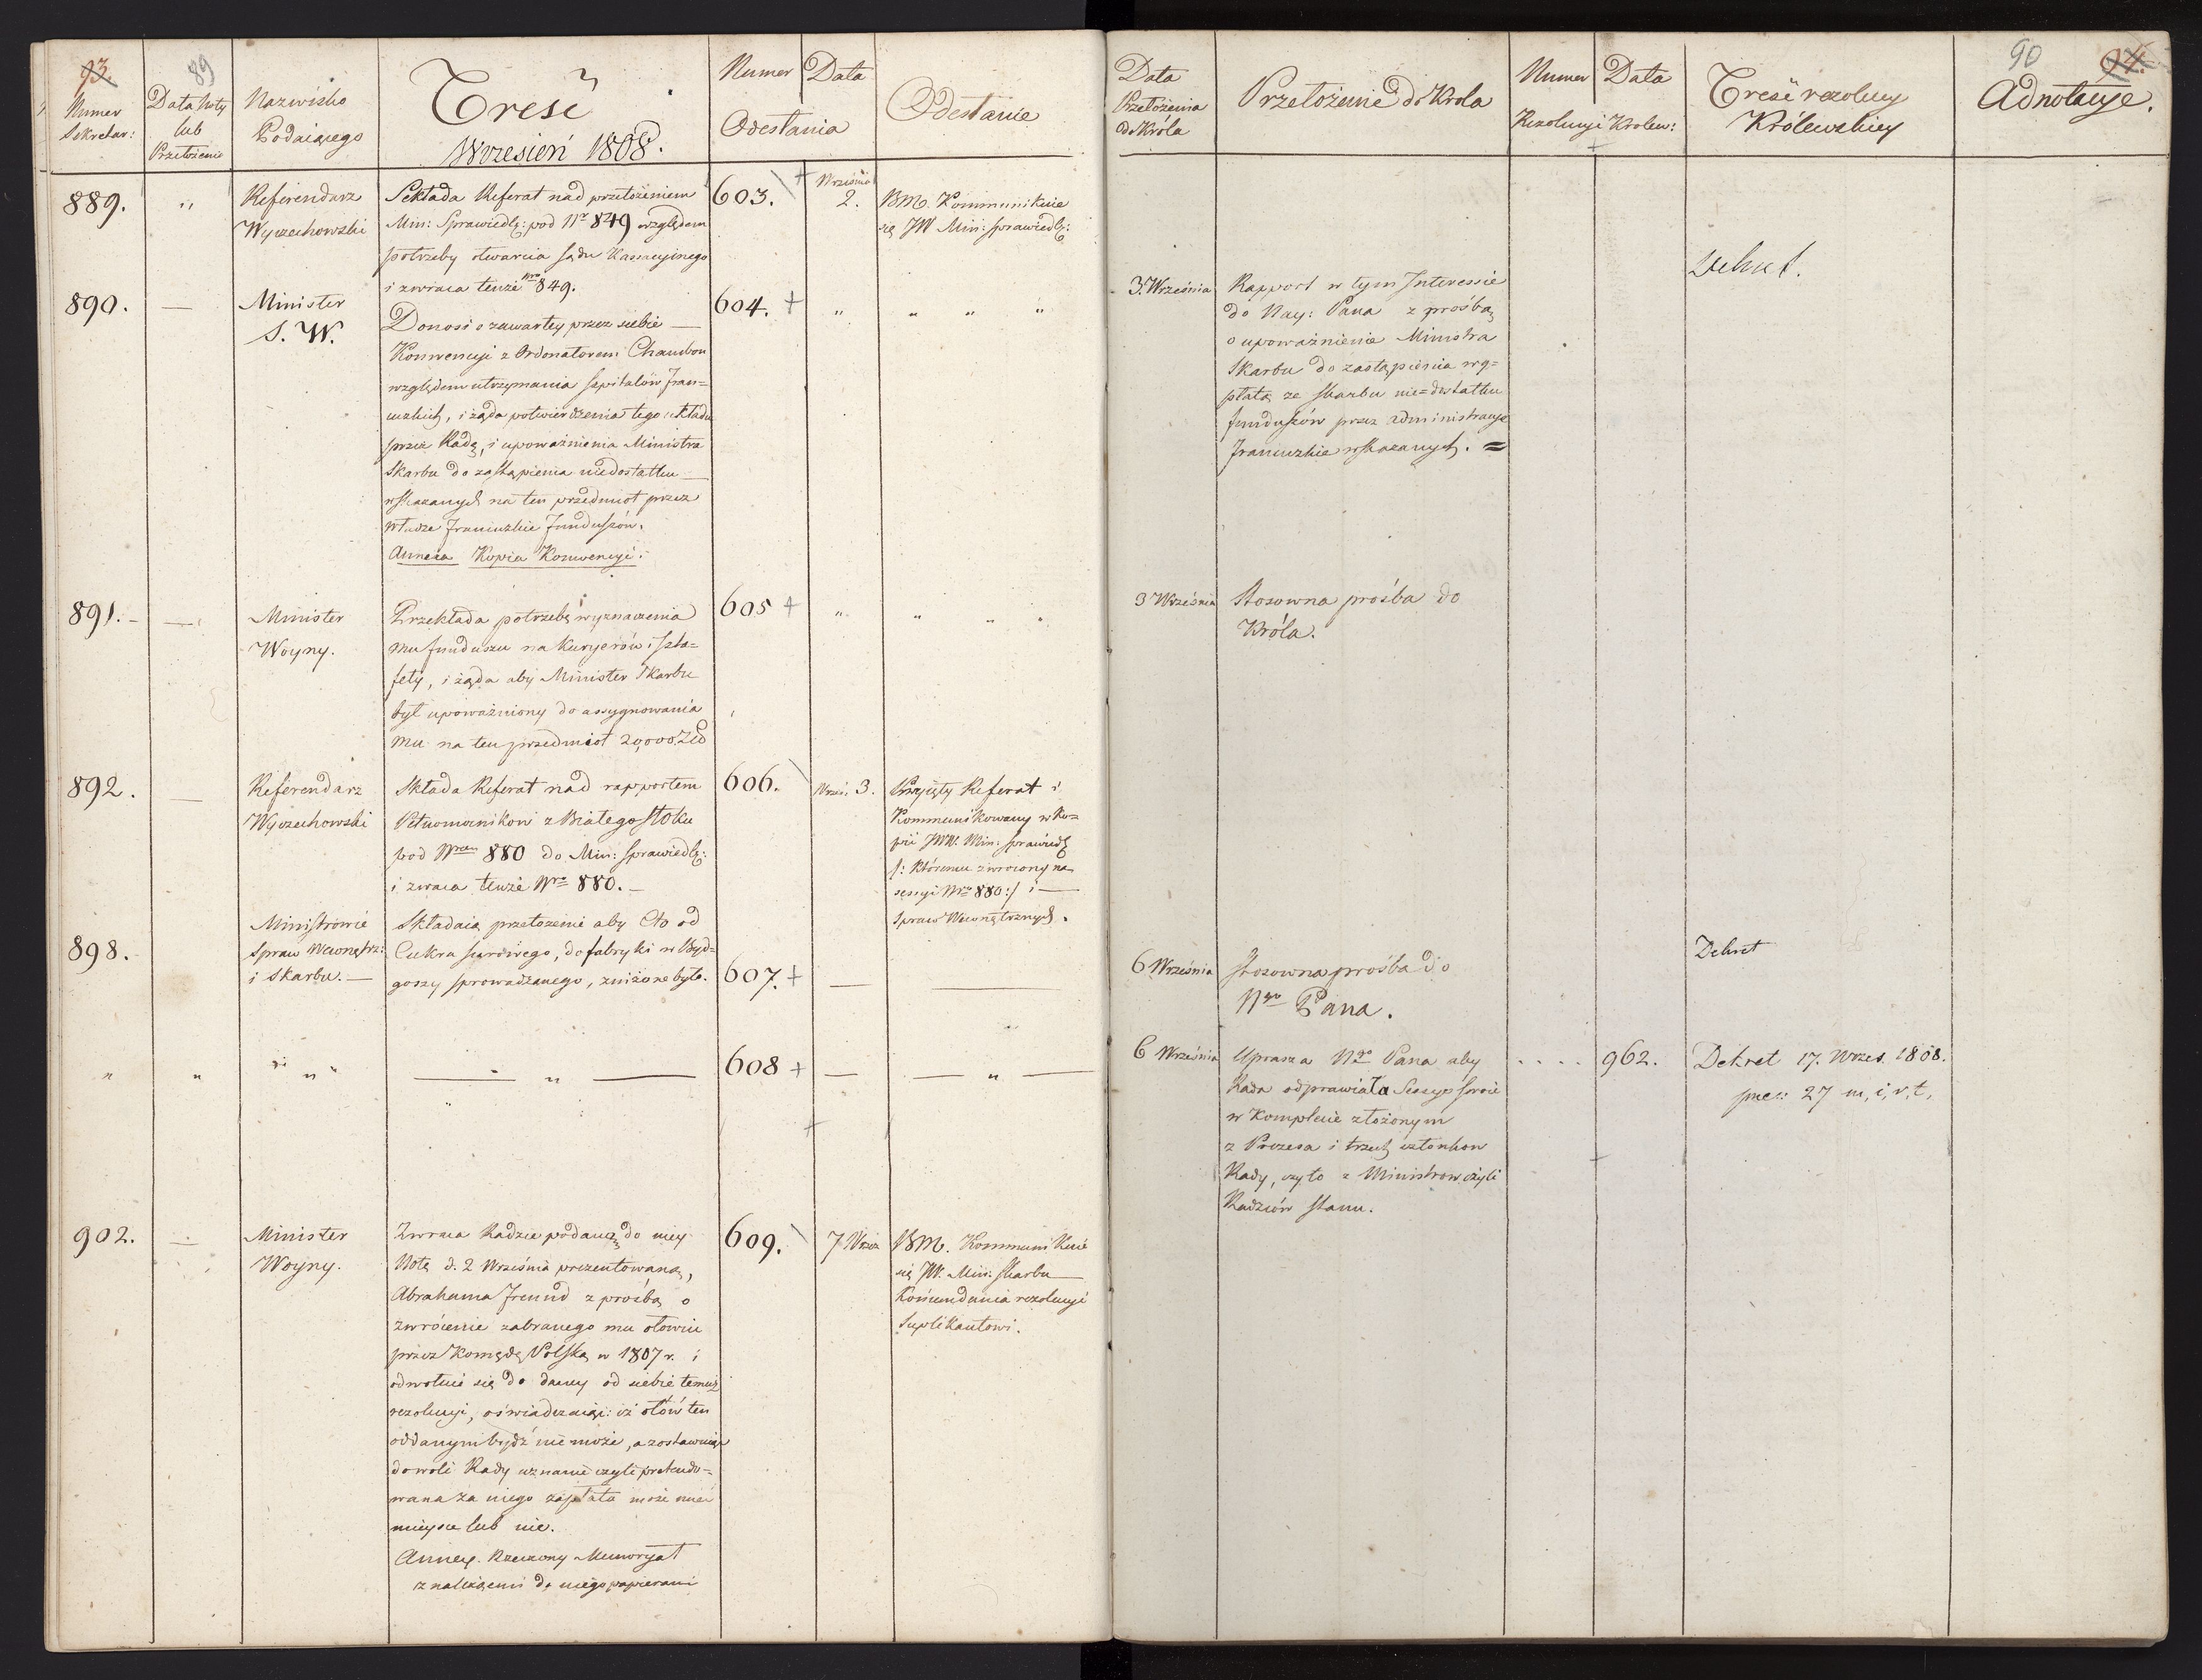 93.
89
Numer
Sekretar:
Data Noty
lub
Przełożenia
Nazwisko
Podaiącego
Treść
Wrzesień 1808.
Numer
Data
Odesłania
Odesłanie
889.
"
Referendarz
Wyczechowski
Sekłada Referat nad przełożeniem
Min: Sprawiedl: pod Nr 849 względem
potrzeby otwarcia sądu Kassacyinego
i zwraca tenże Nro 849.
603.
Września
2.
BM. Kommunikuie
się JW Min: sprawiedl:
890.
—
Minister
S. W.
Donosi o zawartey przez siebie —
Konwencyi z Ordonatorem Chambon
względem utrzymania szpitalów fran=
cuzkich, i żąda potwierdzenia tego układu
przez Radę, i upoważnienia Ministra
Skarbu do zastąpienia niedostatku —
wskazanych na ten przedmiot przez
Władze francuzkie funduszów.
Annexa Kopia Konwencyi.
604. +
" " " "
891. -
—
Minister
Woyny.
Przekłada potrzebę wyznaczenia
mu funduszu na Kuryerów i szta=
fety, i żąda aby Minister Skarbu
był upoważniony do assygnowania
mu na ten przedmiot 20,000 Zło
605 +
" " " "
892.
—
Referendarz
Wyczechowski
Składa Referat nad rapportem
Pełnomocników z Białego Stoku
pod Nrem 880 do Min: sprawiedl:
i zwraca tenże Nro 880. —
606.
Wrześ. 3.
Przyięty Referat i
Kommunikowany w Ko=
pii JWW. Min: sprawiedl
/: któremu zwrócony na
sessyi Nro 880 :/ i —
Spraw Wewnętrznych.
898.
Ministrowie
Spraw Wewnętrz:
i Skarbu. —
Składaią przełożenie aby Cło od
Cukru surowego, do fabryki w Byd=
goszy sprowadzanego, zniżone było.
607. +
— —
" " " "
— " —
608 +
— — " —
902.
—
Minister
Woyny.
Zwraca Radzie podaną do niey
Notę d. 2 Września prezentowaną,
Abrahama Freund z prośbą o
zwrócenie zabranego mu ołowiu
przez Komędę Polską w 1807 r. i
odwołuie się do daney od siebie temuż
rezolucyi, oświadczaiąc: iż ołów ten
oddanym bydź nie może, a zostawuiąc
do woli Rady uznanie czyli pretendo=
wana za niego zapłata może mieć
mieysce lub nie.
Annex. Rzeczony Memoryał
z należącemi do niego papierami
609.
7 Wrześ
BM. Kommunikuie
się JW. Min: Skarbu —
Końcem dania rezolucyi
Suplikantowi.
90
94.
Data
Przełożenia
do Króla
Przełożenie do Krola
Numer
Data
Rezolucyi Królew:
Treść rezolucy
Królewskiey
Adnotacye.
3. Września
Rapport w tym Interessie
do Nay: Pana z prośbą
o upoważnienie Ministra
Skarbu do zastąpienia wy=
płatą ze skarbu nie=dostatku
funduszów przez administracye
francuzkie wskazanych. =
Dekret.
3 Września
Stosowna prośba do
Króla.
6 Września
Stosowna prośba do
Ngo Pana.
Dekret
6 Września
Uprasza Ngo Pana aby
Rada odprawiała Sessye swoie
w Komplecie złożonym
z Prezesa i trzech członków
Rady, czyto z Ministrow czyli
Radzców stanu.
. . . .
962.
Dekret 17. Wrześ. 1808.
27 m, i, r, t,